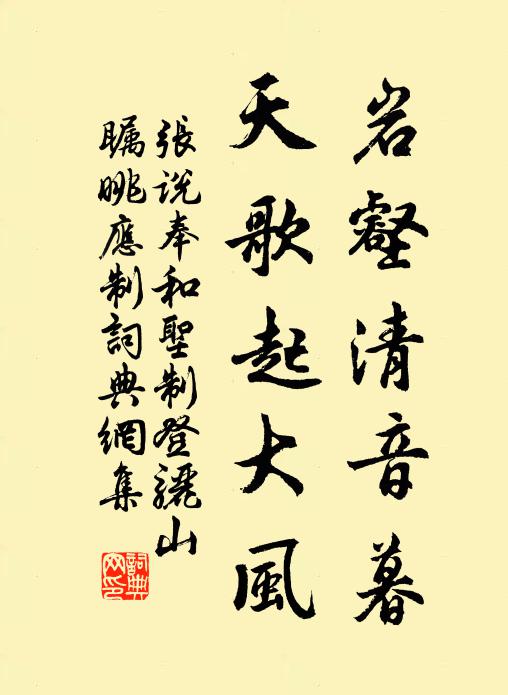 岩壑清音暮
天歌起大風
張說奉和聖制登驪山
矚眺應制詞典網集
詞典網印